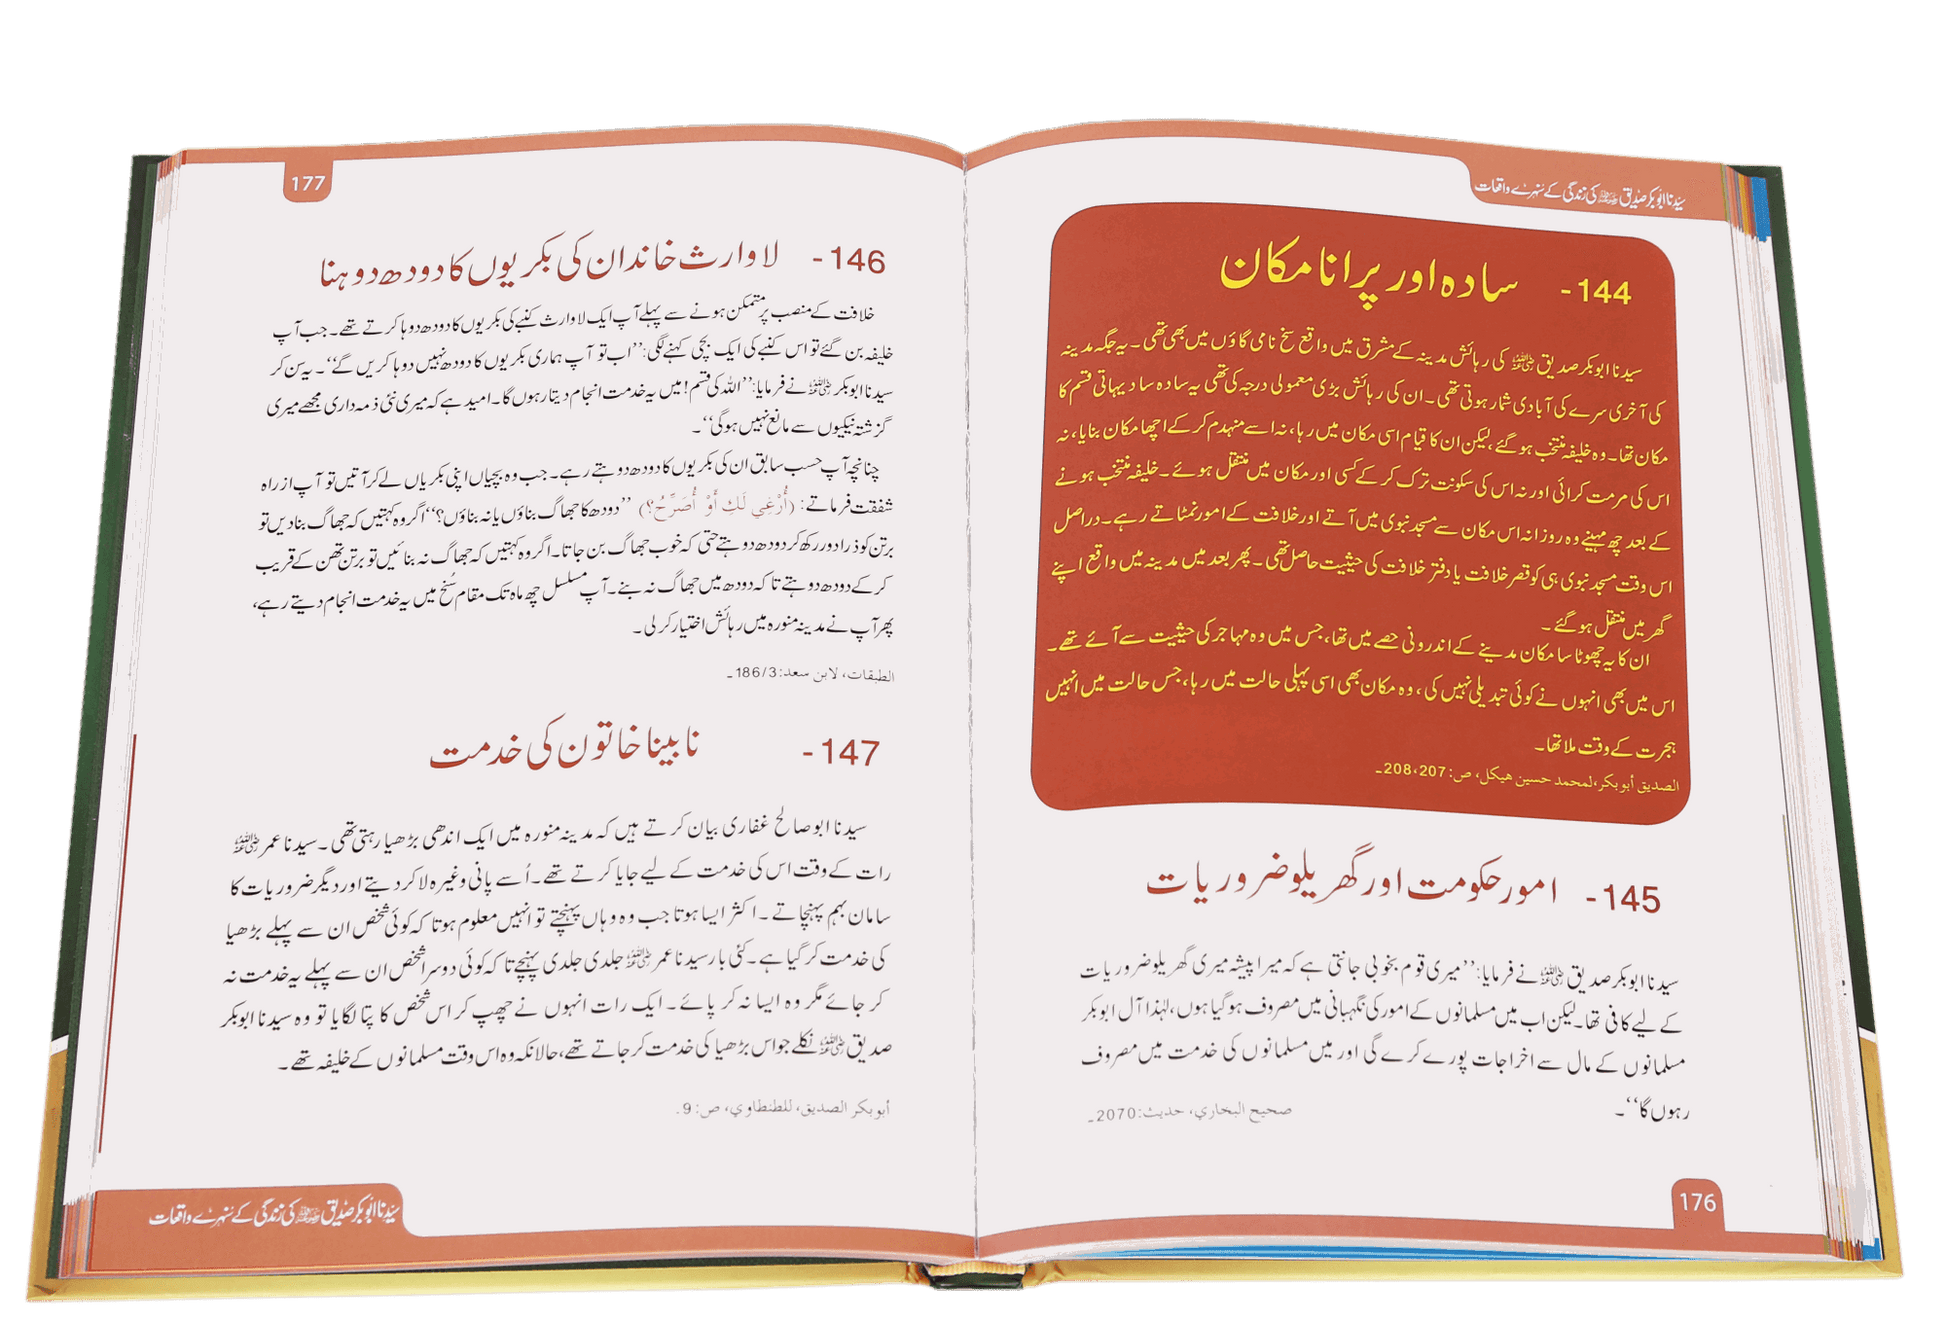 سیدنا ابوبکر صدیق ﷜ کی زندگی کے سنہرے واقعات
144- سادہ اور پرانا مکان
سیدنا ابوبکر صدیق ﷜ کی رہائش مدینہ کے مشرق میں واقع سخ نامی گاؤں میں بھی تھی۔ یہ جگہ مدینہ
کی آخری سرے کی آبادی شمار ہوتی تھی۔ ان کی رہائش بڑی معمولی درجہ کی تھی یہ سادہ سا دیہاتی قسم کا
مکان تھا۔ وہ خلیفہ منتخب ہو گئے، لیکن ان کا قیام اسی مکان میں رہا، نہ اسے منہدم کر کے اچھا مکان بنایا، نہ
اس کی مرمت کرائی اور نہ اس کی سکونت ترک کر کے کسی اور مکان میں منتقل ہوئے۔ خلیفہ منتخب ہونے
کے بعد چھ مہینے وہ روزانہ اس مکان سے مسجد نبوی میں آتے اور خلافت کے امور نمٹاتے رہے۔ دراصل
اس وقت مسجد نبوی ہی کو قصر خلافت یا دفتر خلافت کی حیثیت حاصل تھی۔ پھر بعد میں مدینہ میں واقع اپنے
گھر میں منتقل ہو گئے۔
ان کا یہ چھوٹا سا مکان مدینے کے اندرونی حصے میں تھا، جس میں وہ مہاجر کی حیثیت سے آئے تھے۔
اس میں بھی انہوں نے کوئی تبدیلی نہیں کی، وہ مکان بھی اسی پہلی حالت میں رہا، جس حالت میں انہیں
ہجرت کے وقت ملا تھا۔
الصديق أبو بكر، لمحمد حسين هيكل، ص: 207، 208۔
145- امور حکومت اور گھریلو ضروریات
سیدنا ابوبکر صدیق ﷜ نے فرمایا: ’’میری قوم بخوبی جانتی ہے کہ میرا پیشہ میری گھریلو ضروریات
کے لیے کافی تھا۔ لیکن اب میں مسلمانوں کے امور کی نگہبانی میں مصروف ہو گیا ہوں، لہٰذا آل ابوبکر
مسلمانوں کے مال سے اخراجات پورے کرے گی اور میں مسلمانوں کی خدمت میں مصروف
رہوں گا‘‘۔
صحيح البخاري، حديث: 2070۔
176
177
146- لاوارث خاندان کی بکریوں کا دودھ دوہنا
خلافت کے منصب پر متمکن ہونے سے پہلے آپ ایک لاوارث کنبے کی بکریوں کا دودھ دوہا کرتے تھے۔ جب آپ
خلیفہ بن گئے تو اس کنبے کی ایک بچی کہنے لگی: ’’اب تو آپ ہماری بکریوں کا دودھ نہیں دوہا کریں گے‘‘۔ یہ سن کر
سیدنا ابوبکر ﷜ نے فرمایا: ’’اللہ کی قسم! میں یہ خدمت انجام دیتا رہوں گا۔ امید ہے کہ میری نئی ذمہ داری مجھے میری
گزشتہ نیکیوں سے مانع نہیں ہوگی‘‘۔
چنانچہ آپ حسب سابق ان کی بکریوں کا دودھ دوہتے رہے۔ جب وہ بچیاں اپنی بکریاں لے کر آتیں تو آپ از راہ
شفقت فرماتے: (أُرْغِي لَكِ أَوْ أُصَرِّحُ؟) ’’دودھ کا جھاگ بناؤں یا نہ بناؤں؟‘‘ اگر وہ کہتیں کہ جھاگ بنا دیں تو
برتن کو ذرا دور رکھ کر دودھ دوہتے حتی کہ خوب جھاگ بن جاتا۔ اگر وہ کہتیں کہ جھاگ نہ بنائیں تو برتن تھن کے قریب
کر کے دودھ دوہتے تاکہ دودھ میں جھاگ نہ بنے۔ آپ مسلسل چھ ماہ تک مقام سُخ میں یہ خدمت انجام دیتے رہے،
پھر آپ نے مدینہ منورہ میں رہائش اختیار کر لی۔
الطبقات، لابن سعد: 186/3۔
147- نابینا خاتون کی خدمت
سیدنا ابو صالح غفاری بیان کرتے ہیں کہ مدینہ منورہ میں ایک اندھی بڑھیا رہتی تھی۔ سیدنا عمر ﷜
رات کے وقت اس کی خدمت کے لیے جایا کرتے تھے۔ اُسے پانی وغیرہ لا کر دیتے اور دیگر ضروریات کا
سامان بہم پہنچاتے۔ اکثر ایسا ہوتا جب وہ وہاں پہنچتے تو انہیں معلوم ہوتا کہ کوئی شخص ان سے پہلے بڑھیا
کی خدمت کر گیا ہے۔ کئی بار سیدنا عمر ﷜ جلدی جلدی پہنچے تاکہ کوئی دوسرا شخص ان سے پہلے یہ خدمت نہ
کر جائے مگر وہ ایسا نہ کر پائے۔ ایک رات انہوں نے چھپ کر اس شخص کا پتا لگایا تو وہ سیدنا ابوبکر
صدیق ﷜ نکلے جو اس بڑھیا کی خدمت کر جاتے تھے، حالانکہ وہ اس وقت مسلمانوں کے خلیفہ تھے۔
أبو بكر الصديق، للطنطاوي، ص: 9۔
سیدنا ابوبکر صدیق ﷜ کی زندگی کے سنہرے واقعات